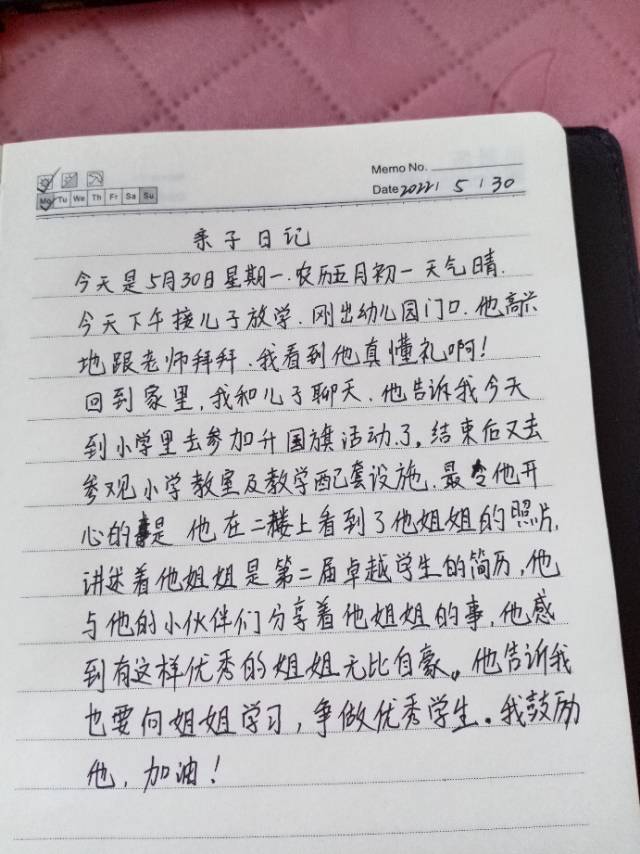 Memo No.
Mo Tu We Th Fr Sa Su
Date 2022 / 5 / 30
亲子日记
今天是5月30日星期一.农历五月初一天气晴.
今天下午接儿子放学.刚出幼儿园门口.他高兴
地跟老师拜拜.我看到他真懂礼啊!
回到家里,我和儿子聊天.他告诉我今天
到小学里去参加升国旗活动了。结束后又去
参观小学教室及教学配套设施.最令他开
心的是 他在二楼上看到了他姐姐的照片,
讲述着他姐姐是第二届卓越学生的简历,他
与他的小伙伴们分享着他姐姐的事,他感
到有这样优秀的姐姐无比自豪。他告诉我
也要向姐姐学习,争做优秀学生。我鼓励
他,加油!